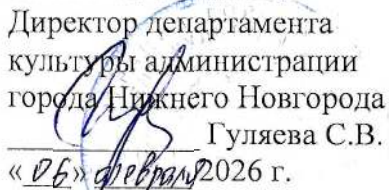 Директор департамента
культуры администрации
города Нижнего Новгорода
Гуляева С.В.
«06» февраля 2026 г.